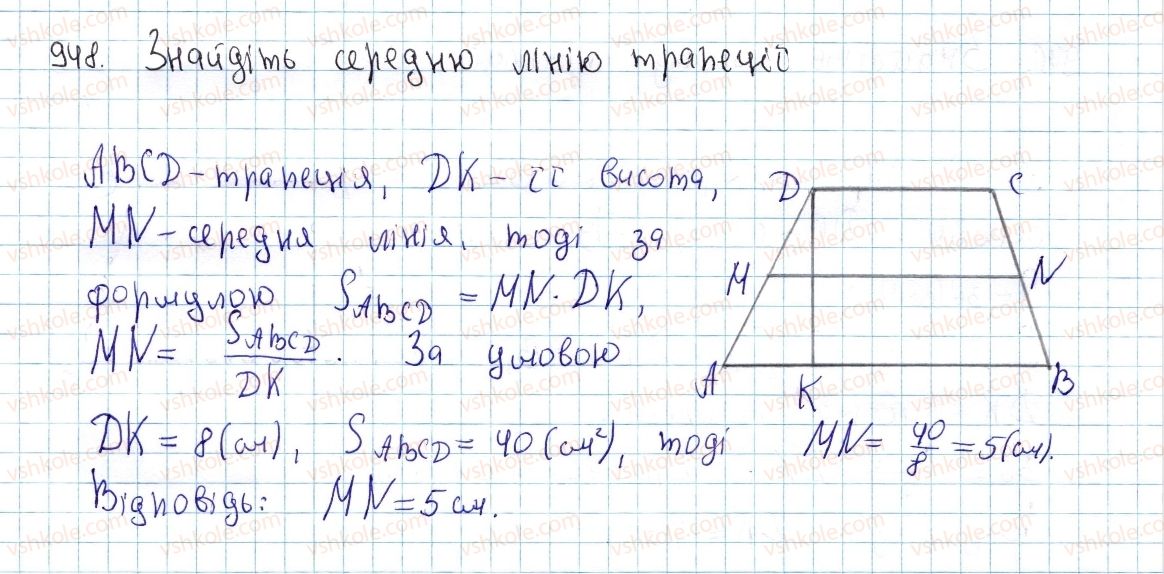 948. Знайдіть середню лінію трапеції
ABCD - трапеція, DK - її висота,
MN - середня лінія, тоді за
формулою S_ABCD = MN · DK,
MN = S_ABCD / DK. За умовою
DK = 8 (см), S_ABCD = 40 (см²), тоді MN = 40/8 = 5 (см).
Відповідь: MN = 5 см.
D C
M N
A K B
vshkole.com